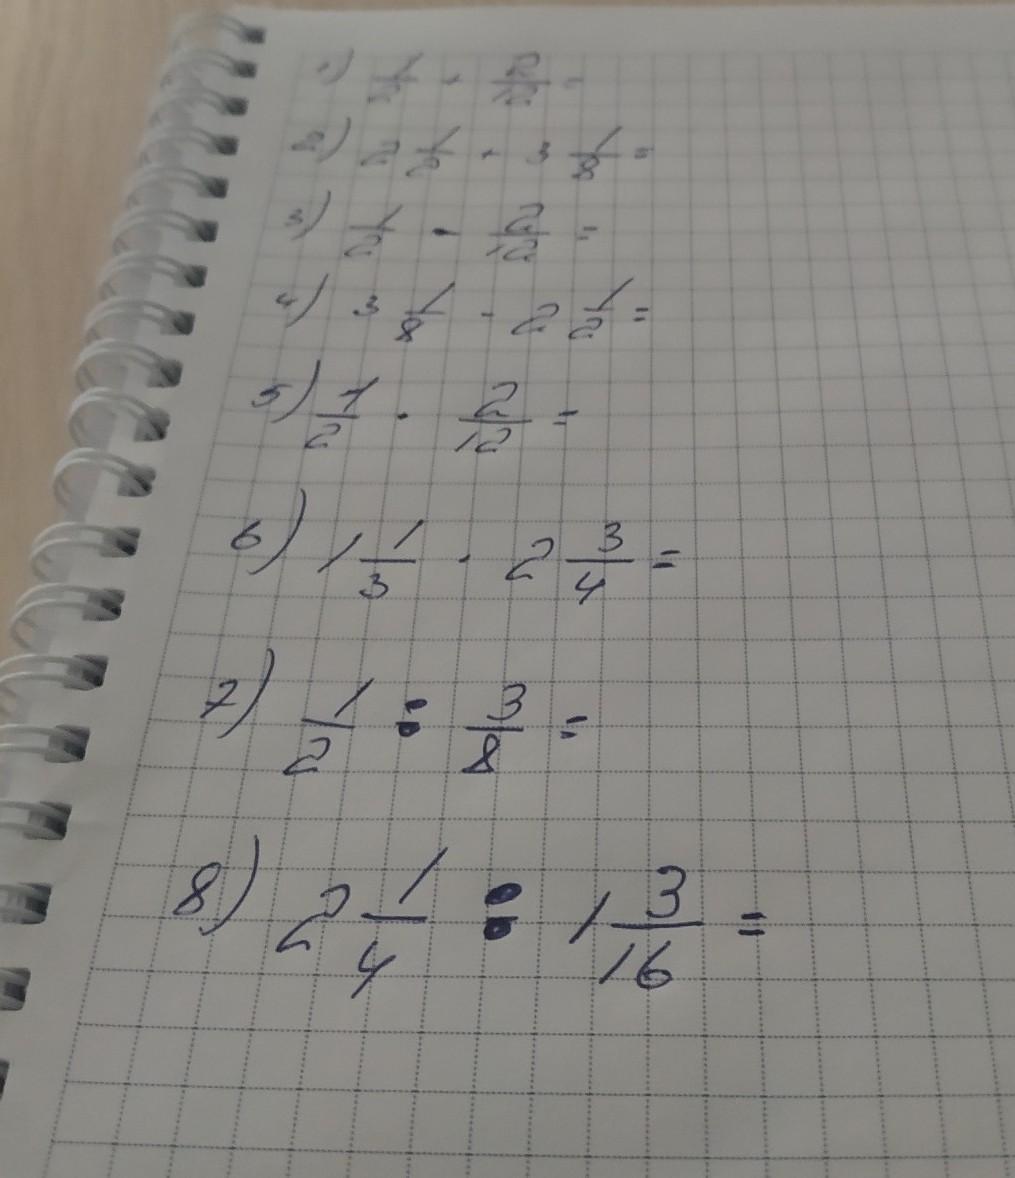 1) 1/2 + 2/12 =
2) 2 1/2 + 3 1/8 =
3) 1/2 - 2/12 =
4) 3 1/8 - 2 1/2 =
5) 1/2 · 2/12 =
6) 1 1/3 · 2 3/4 =
7) 1/2 : 3/8 =
8) 2 1/4 : 1 3/16 =